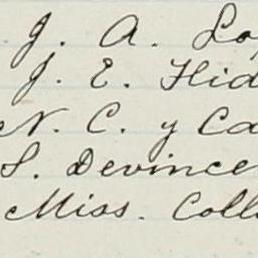 J. A. Lo
J. E. Hid
N. C. y Ca
S. Devince
Miss. Coll